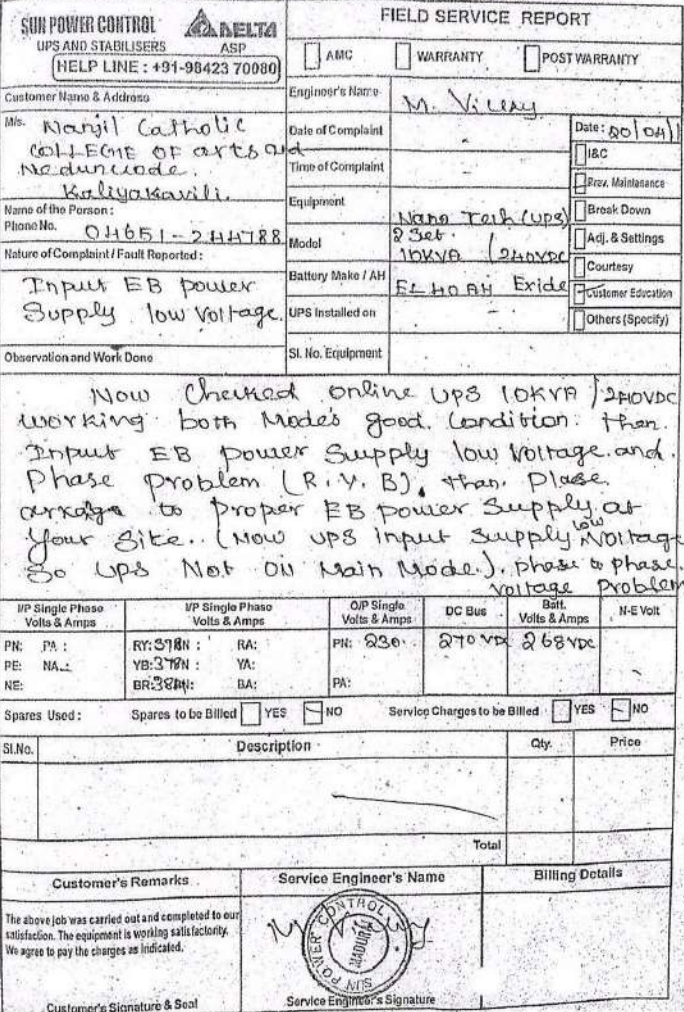 SUN POWER CONTROL
UPS AND STABILISERS
HELP LINE : +91-98423 70080
DELTA
ASP
FIELD SERVICE REPORT
AMC
WARRANTY
POST WARRANTY
Customer Name & Address
M/s. Nanjil Catholic
COLLEGE OF arts and
Kaliyakavili.
Name of the Person :
Phone No. 04651-244788
Nature of Complaint / Fault Reported :
Input EB power
Supply low voltage.
Observation and Work Done
Engineer's Name M.
Date of Complaint -
Time of Complaint -
Equipment Nano Tech (UPS)
Model 2 Set
10KVA / 240VDC
Battery Make / AH Exide
UPS Installed on
Sl. No. Equipment
Date : 20/04/1
I&C
Prev. Maintenance
Break Down
Adj. & Settings
Courtesy
Customer Education
Others (Specify)
Now Checked online UPS 10KVA / 240VDC
working both Modes good. Condition. then.
Input EB power Supply low voltage. and.
Phase problem (R. Y. B), than. Plase.
to proper EB power Supply. at
Your Site.. (Now UPS input Supply low Voltage
So UPS Not ON Main Mode.). phase to phase.
voltage problem
I/P Single Phase
Volts & Amps
I/P Single Phase
Volts & Amps
O/P Single
Volts & Amps
DC Bus
Batt.
Volts & Amps
N-E Volt
PN: PA :
RY: 378N : RA:
PN: 230.
270 VDC
268 VDC
PE: NA.:
YB: 378N : YA:
NE:
BR: 380N: BA:
PA:
Spares Used : Spares to be Billed YES NO Service Charges to be Billed YES NO
Sl.No. Description Qty. Price
Total
Customer's Remarks
The above job was carried out and completed to our
satisfaction. The equipment is working satisfactorily.
We agree to pay the charges as indicated.
Customer's Signature & Seal
Service Engineer's Name
SUN POWER CONTROL
MADURAI
Service Engineer's Signature
Billing Details